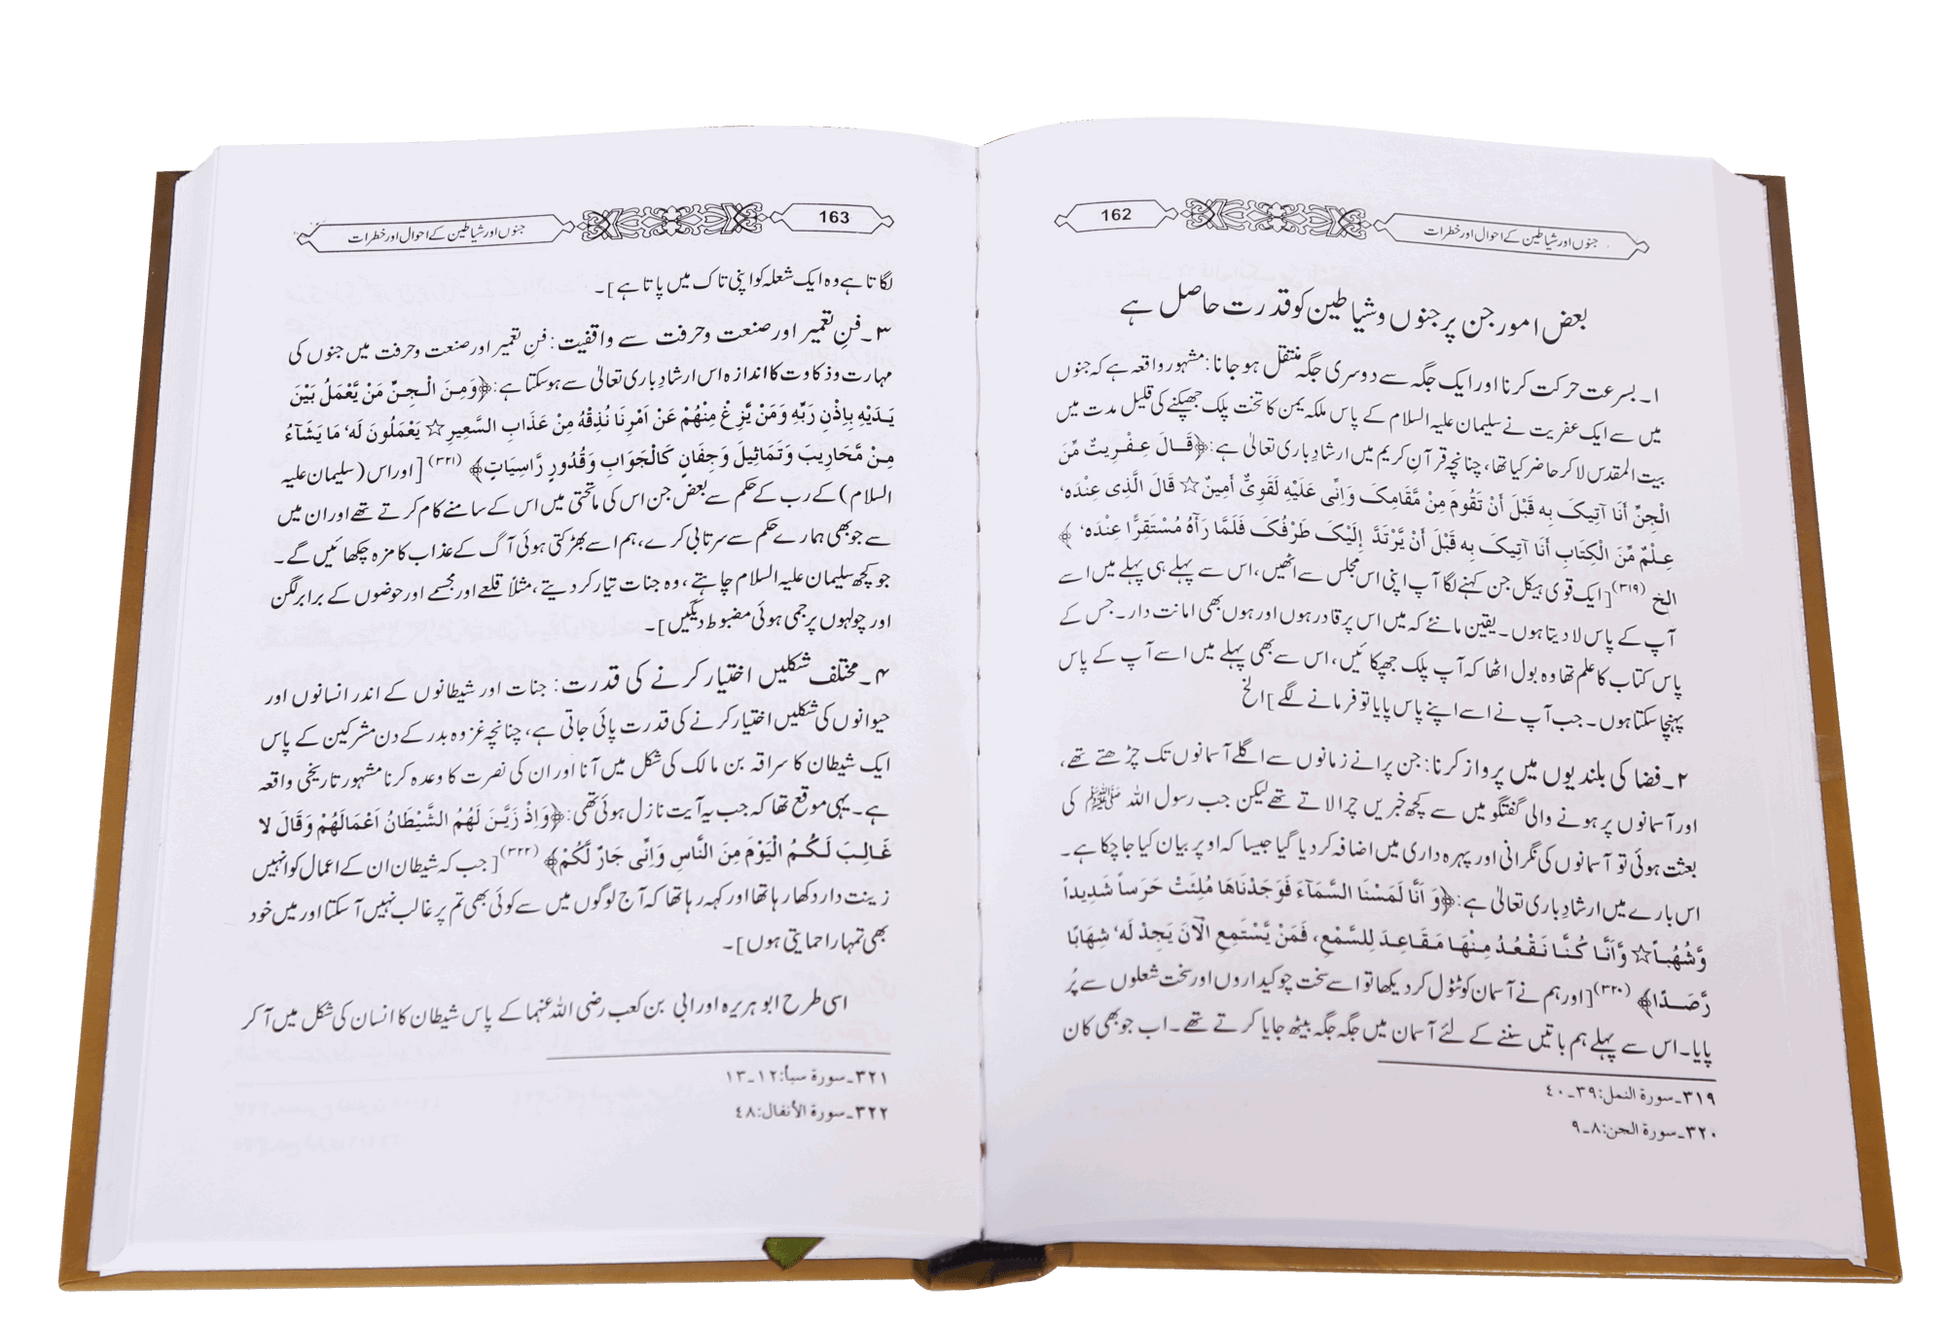 162
جنوں اور شیاطین کے احوال اور خطرات
بعض امور جن پر جنوں و شیاطین کو قدرت حاصل ہے
۱۔ بسرعت حرکت کرنا اور ایک جگہ سے دوسری جگہ منتقل ہو جانا: مشہور واقعہ ہے کہ جنوں
میں سے ایک عفریت نے سلیمان علیہ السلام کے پاس ملکہ یمن کا تخت پلک جھپکنے کی قلیل مدت میں
بیت المقدس لا کر حاضر کیا تھا، چنانچہ قرآن کریم میں ارشاد باری تعالیٰ ہے: ﴿قَالَ عِفْرِيتٌ مِّنَ
الْجِنِّ أَنَا آتِیکَ بِه قَبْلَ أَنْ تَقُومَ مِنْ مَّقَامِکَ وَاِنِّی عَلَیْهِ لَقَوِیٌّ أَمِینٌ☆ قَالَ الَّذِی عِنْدَه‘
عِلْمٌ مِّنَ الْکِتَابِ أَنَا آتِیکَ بِه قَبْلَ أَنْ یَّرْتَدَّ إِلَیْکَ طَرْفُکَ فَلَمَّا رَآهُ مُسْتَقِرًّا عِنْدَه‘ ﴾
الخ (۳۱۹) [ایک قوی ہیکل جن کہنے لگا آپ اپنی اس مجلس سے اٹھیں، اس سے پہلے ہی پہلے میں اسے
آپ کے پاس لا دیتا ہوں۔ یقین مانئے کہ میں اس پر قادر ہوں اور ہوں بھی امانت دار۔ جس کے
پاس کتاب کا علم تھا وہ بول اٹھا کہ آپ پلک جھپکائیں، اس سے بھی پہلے میں اسے آپ کے پاس
پہنچا سکتا ہوں۔ جب آپ نے اسے اپنے پاس پایا تو فرمانے لگے] الخ
۲۔ فضا کی بلندیوں میں پرواز کرنا: جن پرانے زمانوں سے اگلے آسمانوں تک چڑھتے تھے،
اور آسمانوں پر ہونے والی گفتگو میں سے کچھ خبریں چرا لاتے تھے لیکن جب رسول اللہ ﷺ کی
بعثت ہوئی تو آسمانوں کی نگرانی اور پہرہ داری میں اضافہ کر دیا گیا جیسا کہ اوپر بیان کیا جا چکا ہے۔
اس بارے میں ارشاد باری تعالیٰ ہے: ﴿وَ اَنَّا لَمَسْنَا السَّمَآءَ فَوَجَدْنَاهَا مُلِئَتْ حَرَساً شَدِیداً
وَّشُهُباً☆ وَّاَنَّا کُنَّا نَقْعُدُ مِنْهَا مَقَاعِدَ لِلسَّمْعِ، فَمَنْ یَّسْتَمِعِ الْآنَ یَجِدْ لَه‘ شِهَابًا
رَّصَدًا﴾ (۳۲۰) [اور ہم نے آسمان کو ٹٹول کر دیکھا تو اسے سخت چوکیداروں اور سخت شعلوں سے پُر
پایا۔ اس سے پہلے ہم باتیں سننے کے لئے آسمان میں جگہ جگہ بیٹھ جایا کرتے تھے۔ اب جو بھی کان
۳۱۹۔ سورة النمل: ۳۹۔۴۰
۳۲۰۔ سورة الجن: ۸۔۹
163
جنوں اور شیاطین کے احوال اور خطرات
لگاتا ہے وہ ایک شعلہ کو اپنی تاک میں پاتا ہے]۔
۳۔ فنِ تعمیر اور صنعت و حرفت سے واقفیت: فنِ تعمیر اور صنعت و حرفت میں جنوں کی
مہارت و ذکاوت کا اندازہ اس ارشاد باری تعالیٰ سے ہو سکتا ہے: ﴿وَمِنَ الْجِنِّ مَنْ یَّعْمَلُ بَیْنَ
یَدَیْهِ بِاِذْنِ رَبِّهِ وَمَنْ یَّزِغْ مِنْهُمْ عَنْ اَمْرِنَا نُذِقْهُ مِنْ عَذَابِ السَّعِیرِ☆ یَعْمَلُونَ لَه‘ مَا یَشَآءُ
مِنْ مَّحَارِیبَ وَتَمَاثِیلَ وَجِفَانٍ کَالْجَوَابِ وَقُدُورٍ رَّاسِیَاتٍ﴾ (۳۲۱) [اور اس (سلیمان علیہ
السلام) کے رب کے حکم سے بعض جن اس کی ماتحتی میں اس کے سامنے کام کرتے تھے اور ان میں
سے جو بھی ہمارے حکم سے سرتابی کرے، ہم اسے بھڑکتی ہوئی آگ کے عذاب کا مزہ چکھائیں گے۔
جو کچھ سلیمان علیہ السلام چاہتے، وہ جنات تیار کر دیتے، مثلاً قلعے اور مجسمے اور حوضوں کے برابر لگن
اور چولہوں پر جمی ہوئی مضبوط دیگیں]۔
۴۔ مختلف شکلیں اختیار کرنے کی قدرت: جنات اور شیطانوں کے اندر انسانوں اور
حیوانوں کی شکلیں اختیار کرنے کی قدرت پائی جاتی ہے، چنانچہ غزوہ بدر کے دن مشرکین کے پاس
ایک شیطان کا سراقہ بن مالک کی شکل میں آنا اور ان کی نصرت کا وعدہ کرنا مشہور تاریخی واقعہ
ہے۔ یہی موقع تھا کہ جب یہ آیت نازل ہوئی تھی: ﴿وَاِذْ زَیَّنَ لَهُمُ الشَّیْطَانُ اَعْمَالَهُمْ وَقَالَ لَا
غَالِبَ لَکُمُ الْیَوْمَ مِنَ النَّاسِ وَاِنِّی جَارٌ لَّکُمْ﴾ (۳۲۲) [جب کہ شیطان ان کے اعمال کو انہیں
زینت دار دکھا رہا تھا اور کہہ رہا تھا کہ آج لوگوں میں سے کوئی بھی تم پر غالب نہیں آ سکتا اور میں خود
بھی تمہارا حمایتی ہوں]۔
اسی طرح ابو ہریرہ اور ابی بن کعب رضی اللہ عنہما کے پاس شیطان کا انسان کی شکل میں آ کر
۳۲۱۔ سورة سبأ: ۱۲۔۱۳
۳۲۲۔ سورة الأنفال: ۴۸